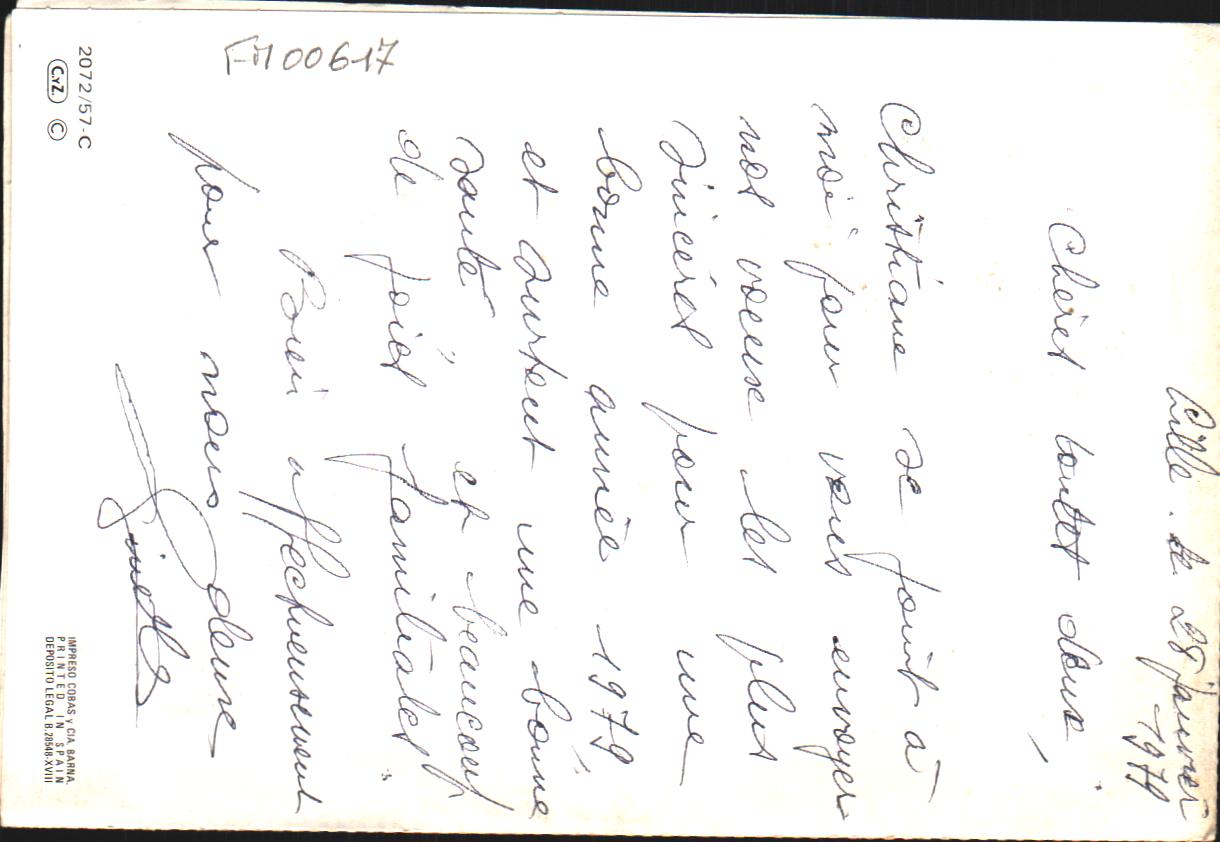 Lille le 28 janvier
1979
Chères toutes deux,
Christiane se joint à
moi pour vous envoyer
nos voeux les plus
sincères pour une
bonne année 1979,
et surtout une bonne
santé et beaucoup
de joies familiales
Bien affectueusement
pour nous deux
Ginette
FM00617
2072/57-C
C.YZ. ©
IMPRESO COBAS Y CIA. BARNA.
PRINTED IN SPAIN
DEPOSITO LEGAL B. 28548-XVIII